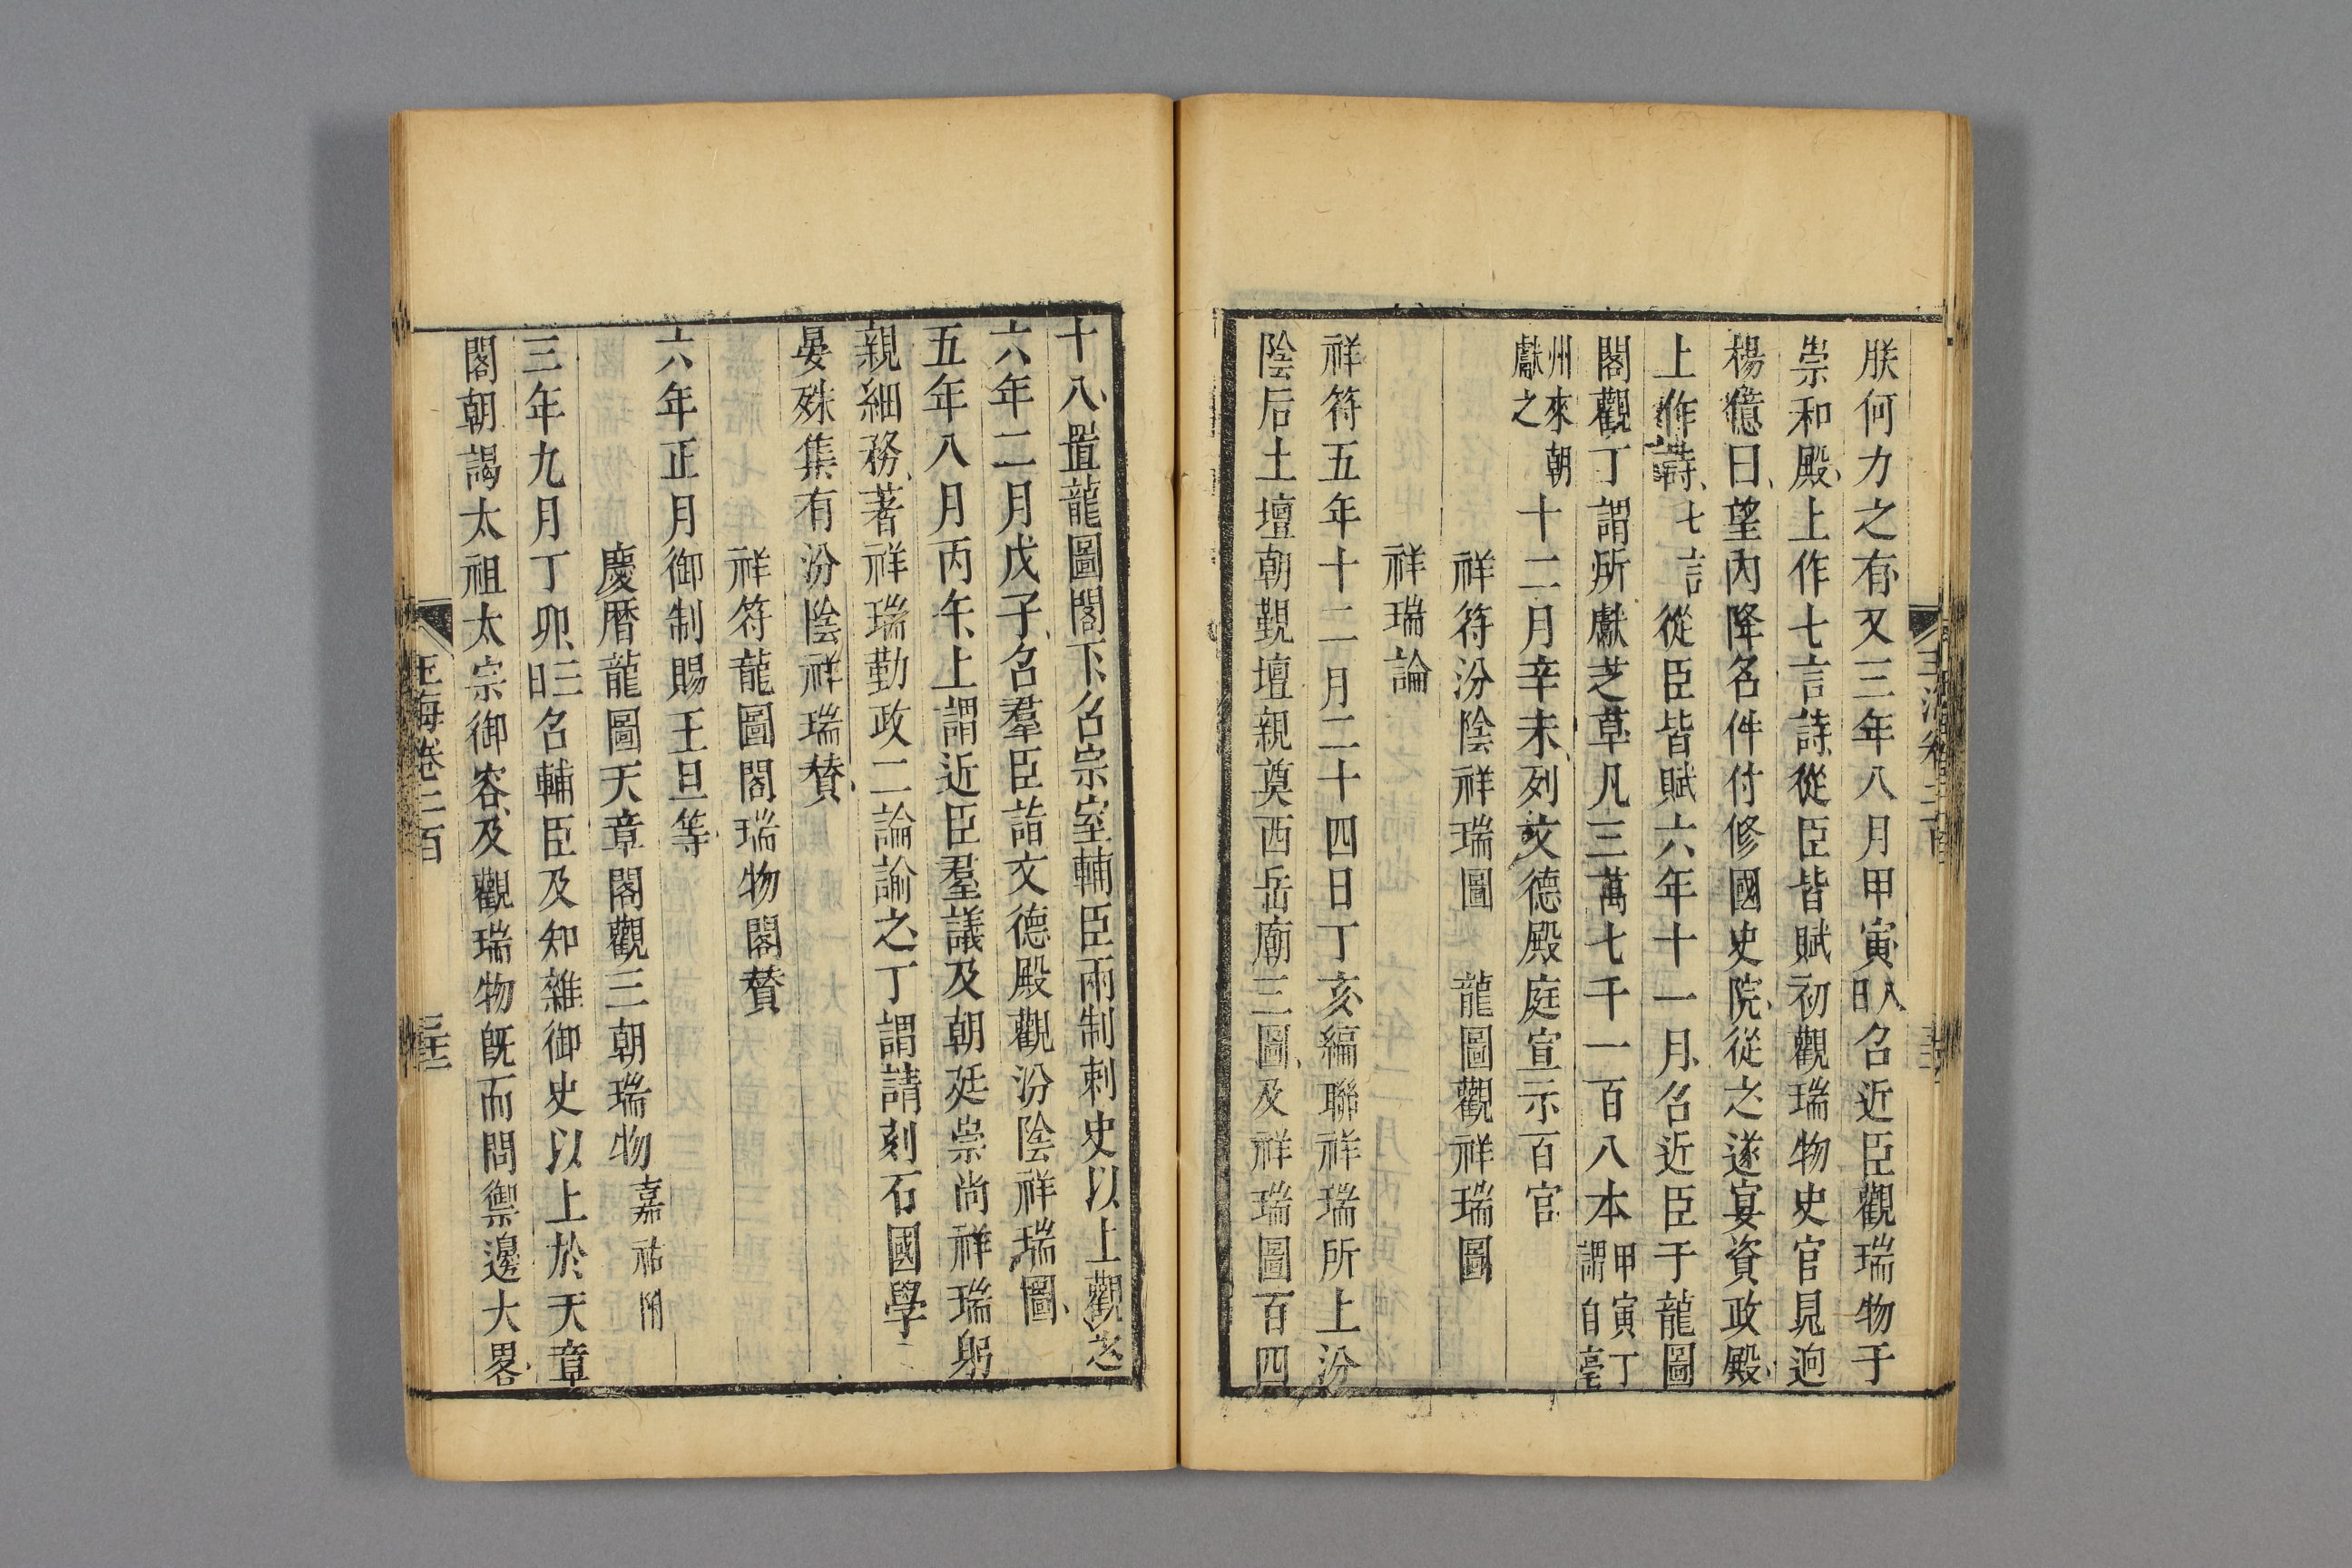 朕何力之有又三年八月甲寅八日召近臣觀瑞物于
崇和殿上作七言詩從臣皆賦初觀瑞物史官見逈
楊億曰望內降名件付修國史院從之遂宴資政殿
上作詩七言從臣皆賦六年十一月召近臣于龍圖
閣觀丁謂所獻芝草凡三萬七千一百八本甲寅丁謂自亳
州來朝獻之十二月辛未列文德殿庭宣示百官
祥符汾陰祥瑞圖 龍圖觀祥瑞圖
祥瑞論
祥符五年十二月二十四日丁亥編聯祥瑞所上汾
陰后土壇朝覲壇親奠西岳廟三圖及祥瑞圖百四
十八置龍圖閣下召宗室輔臣兩制刺史以上觀之
六年二月戊子召羣臣詣文德殿觀汾陰祥瑞圖
五年八月丙午上謂近臣羣議及朝廷崇尚祥瑞躬
親細務著祥瑞勤政二論諭之丁謂請刻石國學
晏殊集有汾陰祥瑞贊
祥符龍圖閣瑞物閣贊
六年正月御制賜王旦等
慶曆龍圖天章閣觀三朝瑞物嘉祐附
三年九月丁卯三日召輔臣及知雜御史以上於天章
閣朝謁太祖太宗御容及觀瑞物旣而問禦邊大畧
玉海卷二百